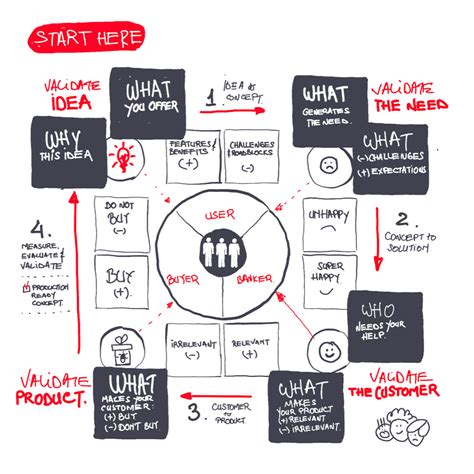 START HERE
VALIDATE
IDEA
WHAT
YOU OFFER
1.
IDEA TO
CONCEPT.
WHAT
GENERATES
THE NEED.
VALIDATE
THE NEED
WHY
THIS IDEA
FEATURES &
BENEFITS
(+)
CHALLENGES
ROADBLOCKS
(-)
WHAT
(-) CHALLENGES
(+) EXPECTATIONS
DO NOT
BUY
(-)
USER
UNHAPPY
(-)
2.
CONCEPT TO
SOLUTION.
4.
MEASURE,
EVALUATE &
VALIDATE
PRODUCTION
READY
CONCEPT.
BUY
(+)
BUYER
BANKER
SUPER
HAPPY
WHO
NEEDS YOUR
HELP.
IRRELEVANT
(-)
RELEVANT
(+)
VALIDATE
PRODUCT.
WHAT
MAKES YOUR
CUSTOMER:
(+) BUY
(-) DON'T BUY
3.
CUSTOMER
TO
PRODUCT
WHAT
MAKES
YOUR PRODUCT
(+) RELEVANT
(-) IRRELEVANT.
VALIDATE
THE CUSTOMER